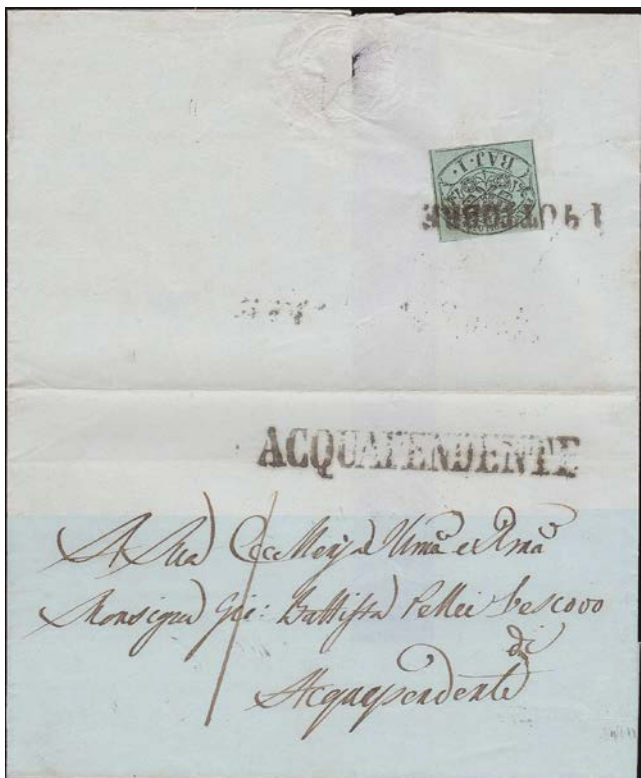 BAJ·1·
19 OTTOBRE
ACQUAPENDENTE
A Sua Eccellenza Illma e Rma
Monsignor Gio: Battista Pellei Vescovo
di
Acquapendente